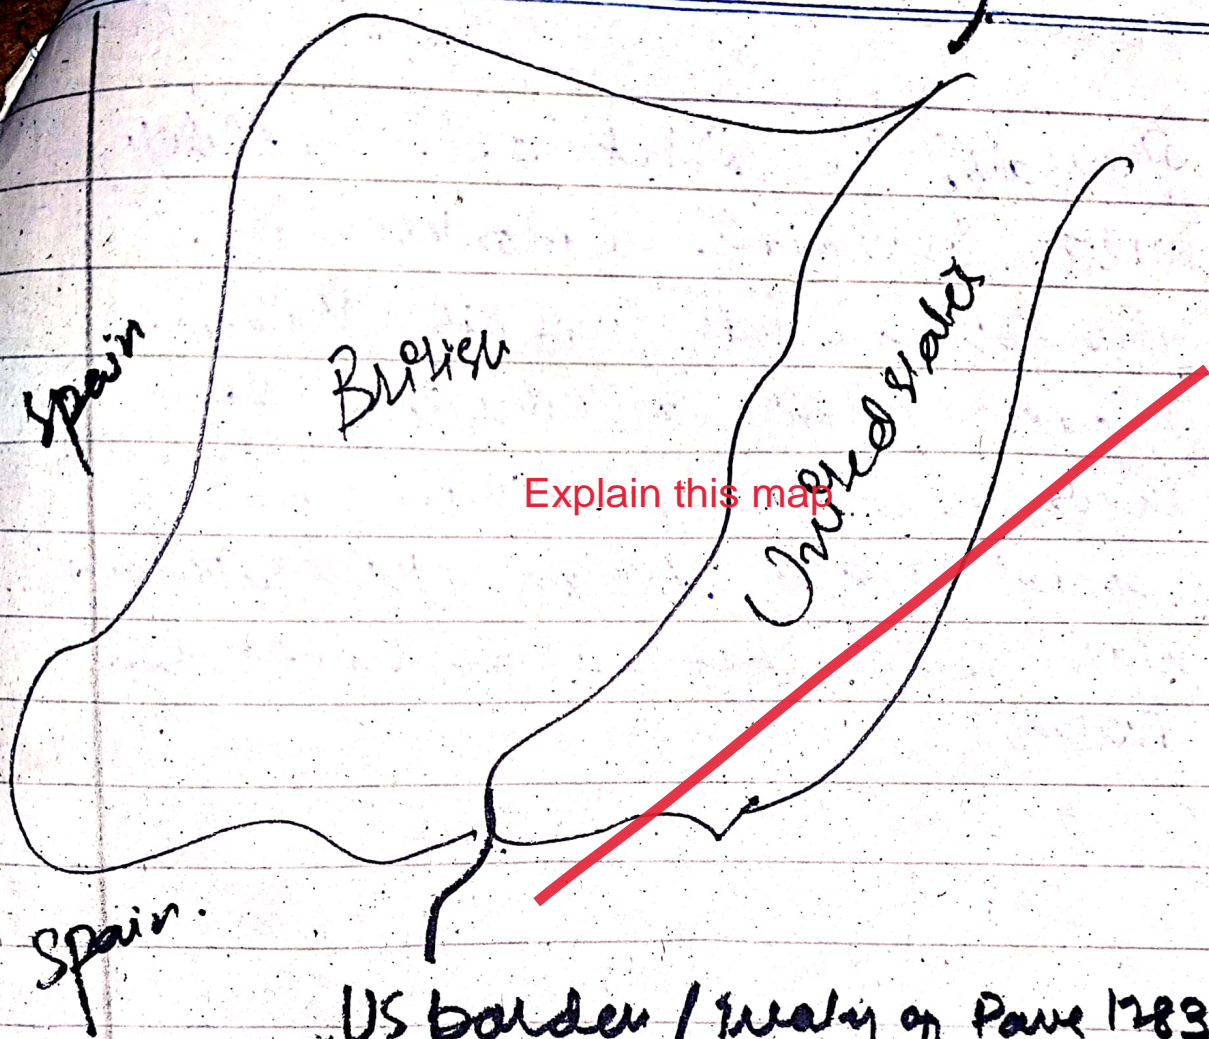 Spain
British
United states
Explain this map
Spain.
US border / Treaty of Paris 1783